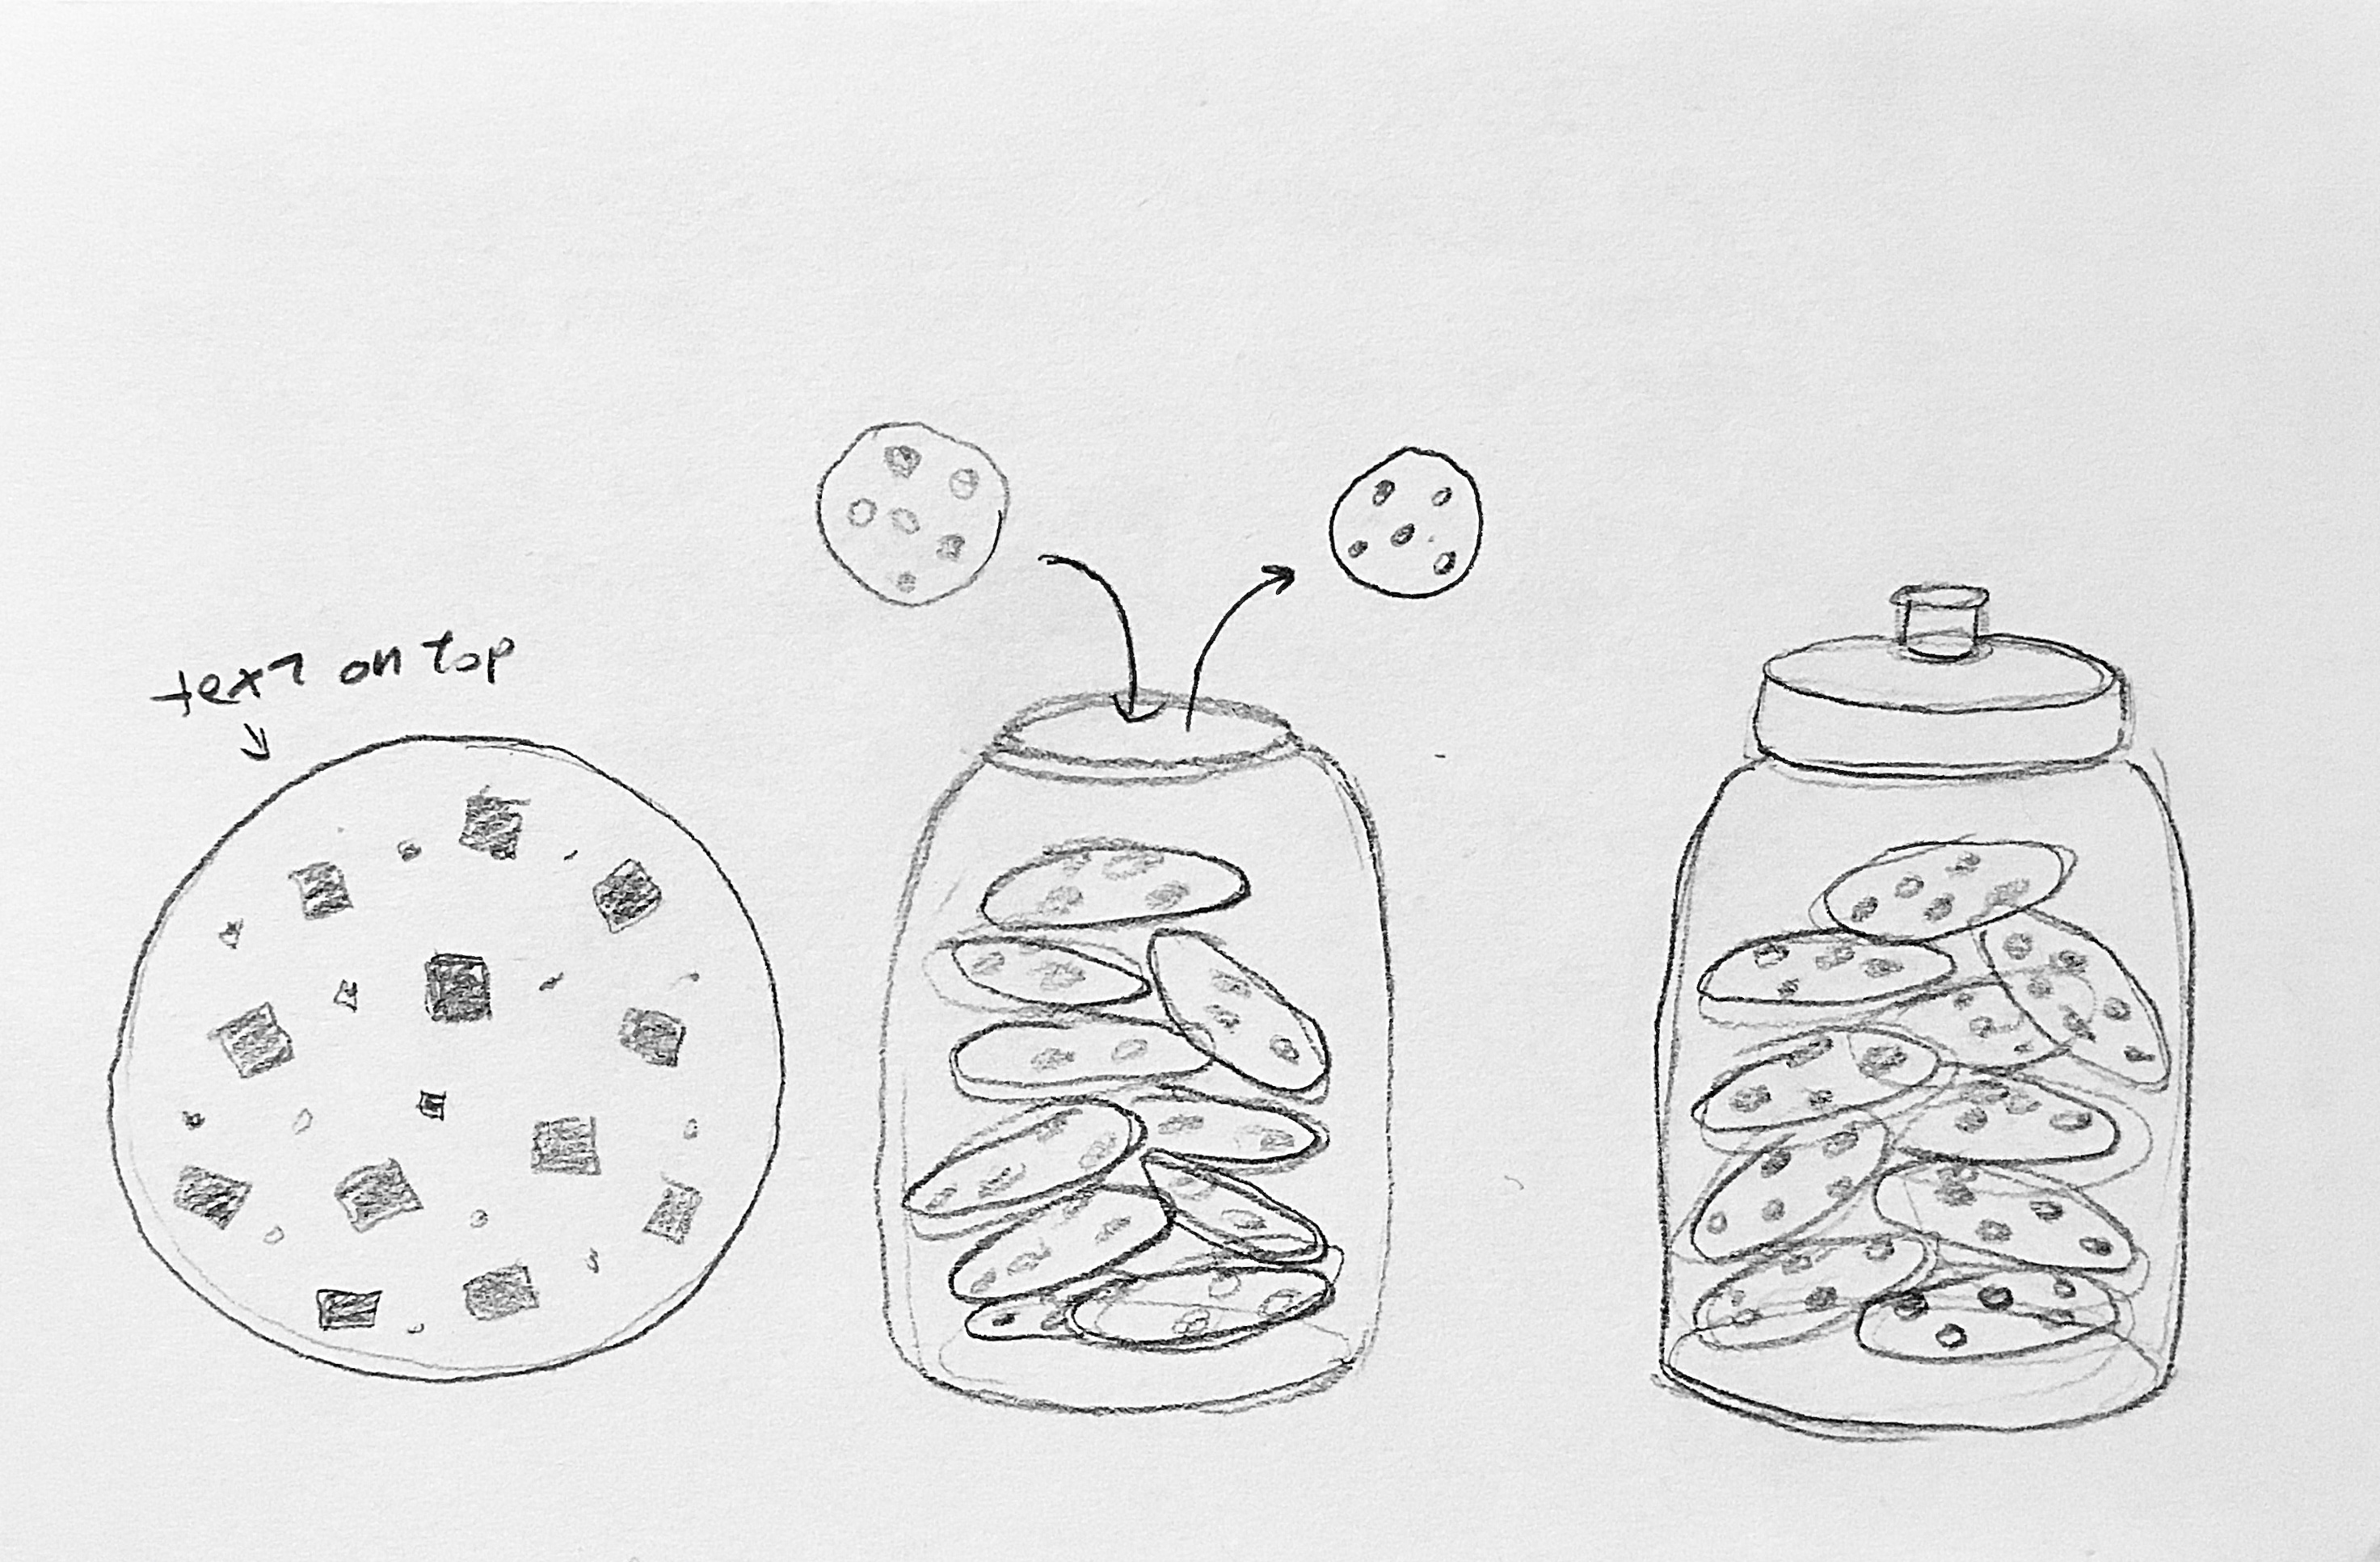 text on top